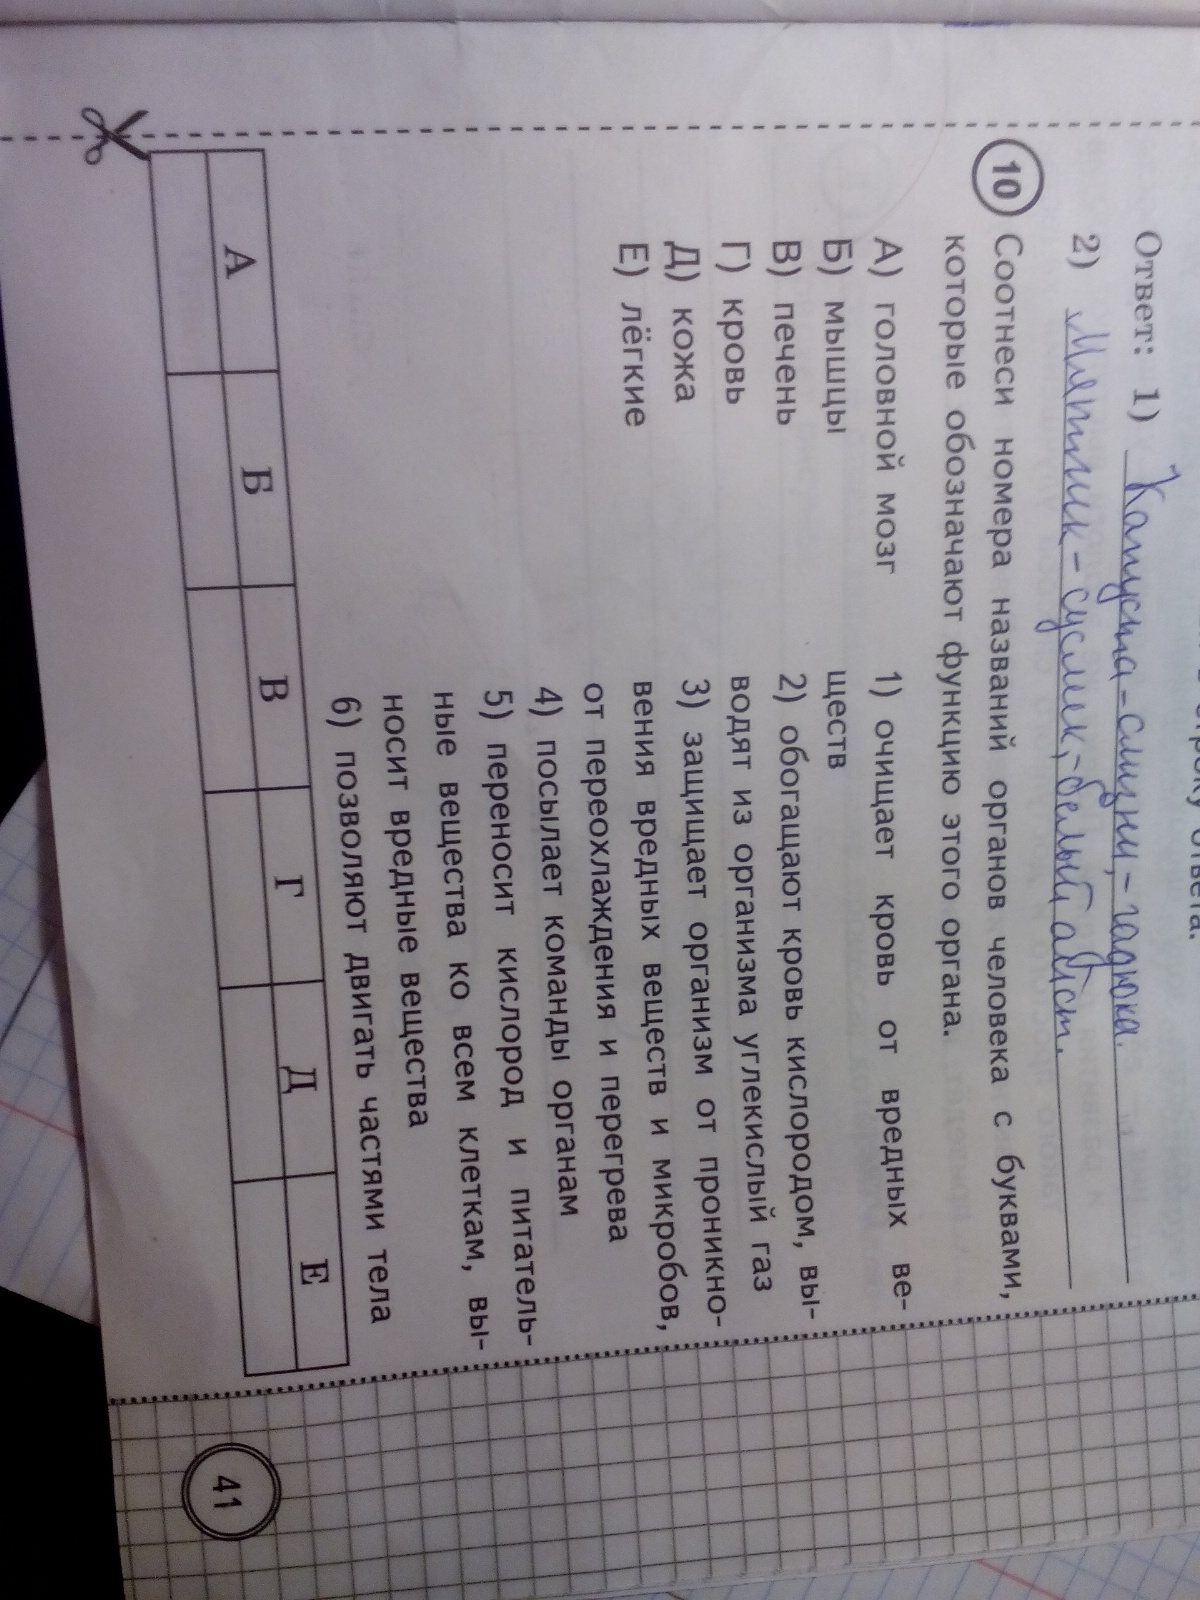 ответа.
Ответ: 1) Капуста-слизни,-гадюка.
2) Мятлик-суслик,-белый аист.
10 Соотнеси номера названий органов человека с буквами,
которые обозначают функцию этого органа.
А) головной мозг
Б) мышцы
В) печень
Г) кровь
Д) кожа
Е) лёгкие
1) очищает кровь от вредных ве-
ществ
2) обогащают кровь кислородом, вы-
водят из организма углекислый газ
3) защищает организм от проникно-
вения вредных веществ и микробов,
от переохлаждения и перегрева
4) посылает команды органам
5) переносит кислород и питатель-
ные вещества ко всем клеткам, вы-
носит вредные вещества
6) позволяют двигать частями тела
А Б В Г Д Е
41